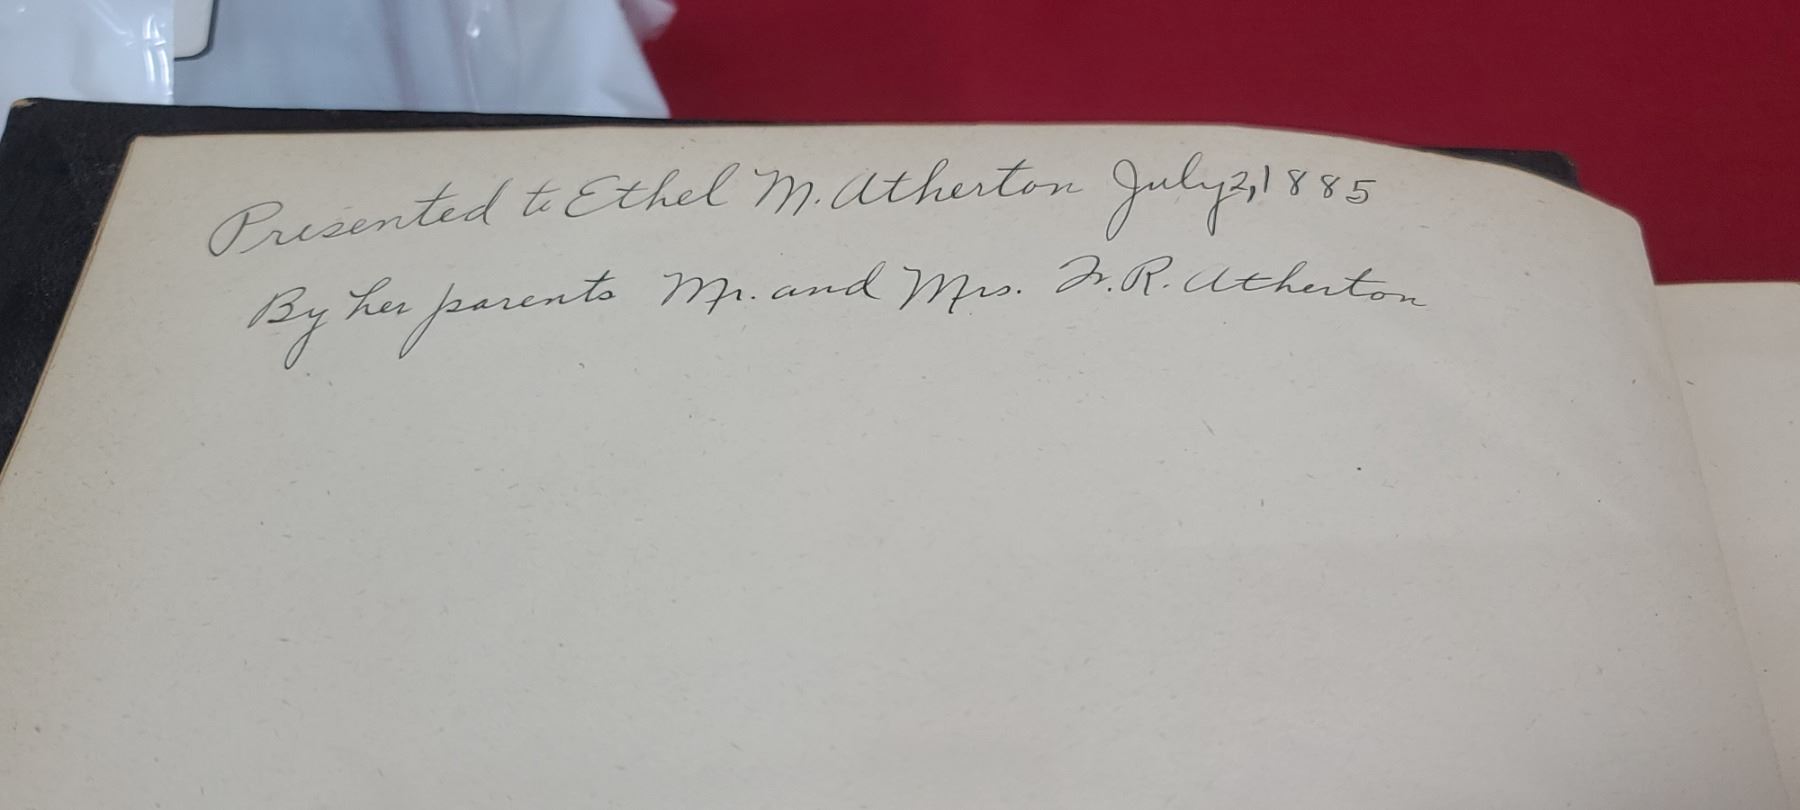 Presented to Ethel M. Atherton July 2, 1885
By her parents Mr. and Mrs. F. R. Atherton